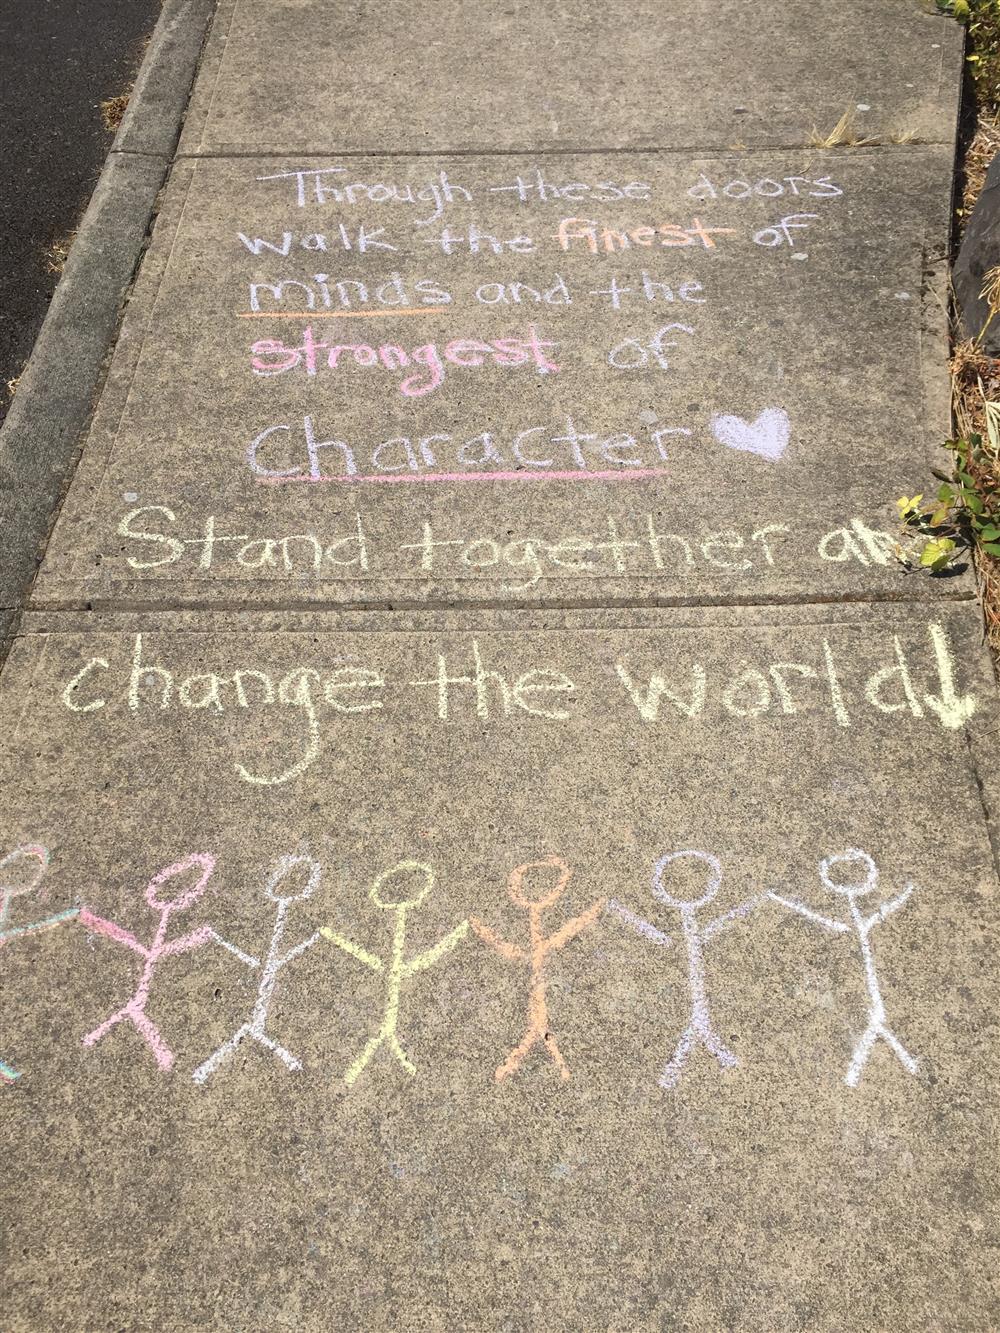 Through these doors
walk the finest of
minds and the
strongest of
Character
Stand together an
change the world